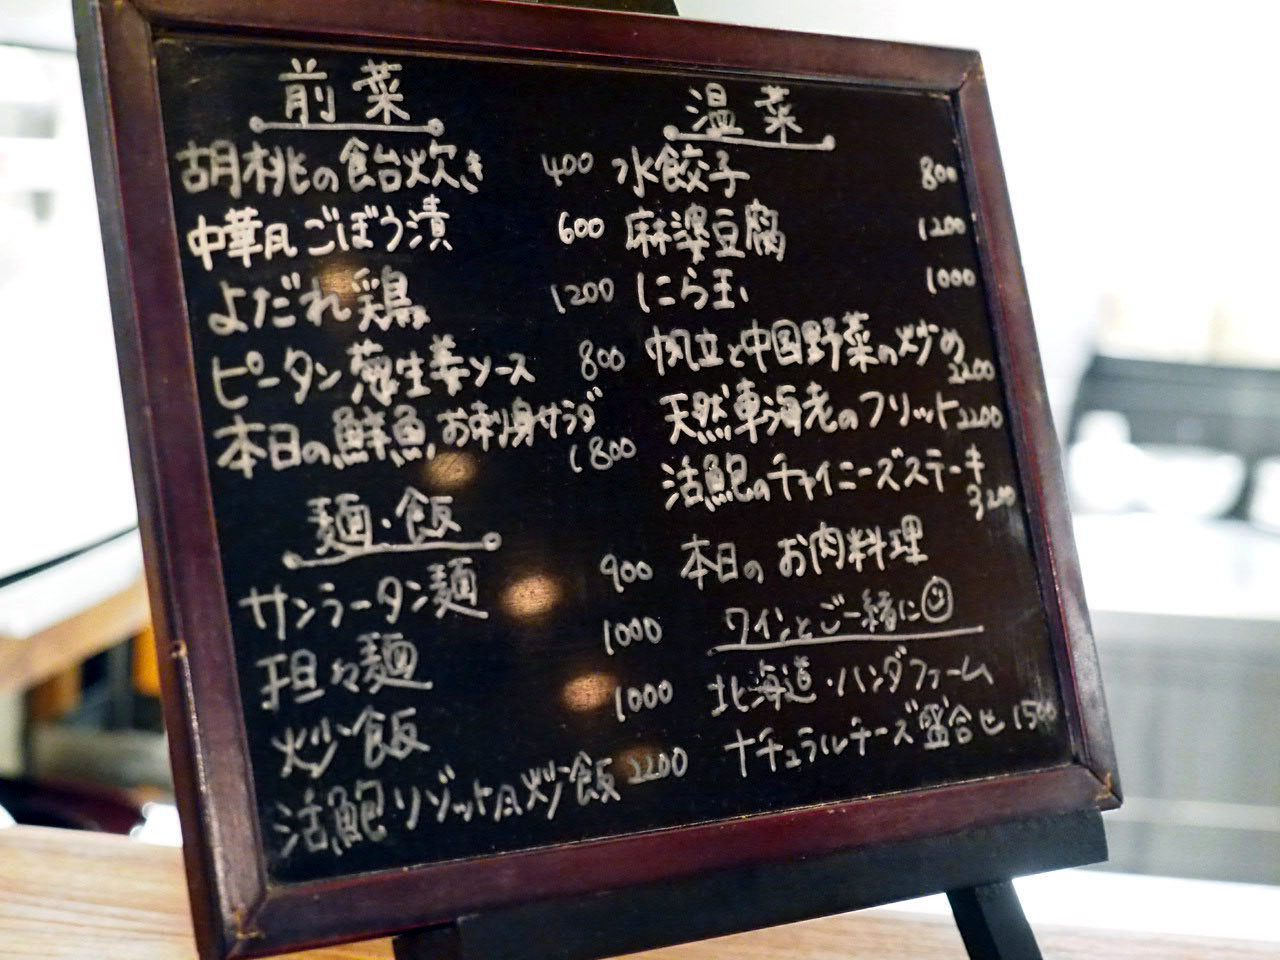 前菜
胡桃の飴炊き 400
中華風ごぼう漬 600
よだれ鶏 1200
ピータン葱生姜ソース 800
本日の鮮魚お刺身サラダ
1800
麺・飯
サンラータン麺 900
担々麺 1000
炒飯 1000
活鮑リゾット風炒飯 2200
温菜
水餃子 800
麻婆豆腐 1200
にら玉 1000
帆立と中国野菜の炒め
2200
天然車海老のフリット 2200
活鮑のチャイニーズステーキ
3200
本日のお肉料理
ワインとご一緒に
北海道・ハンダファーム
ナチュラルチーズ盛合せ 1500